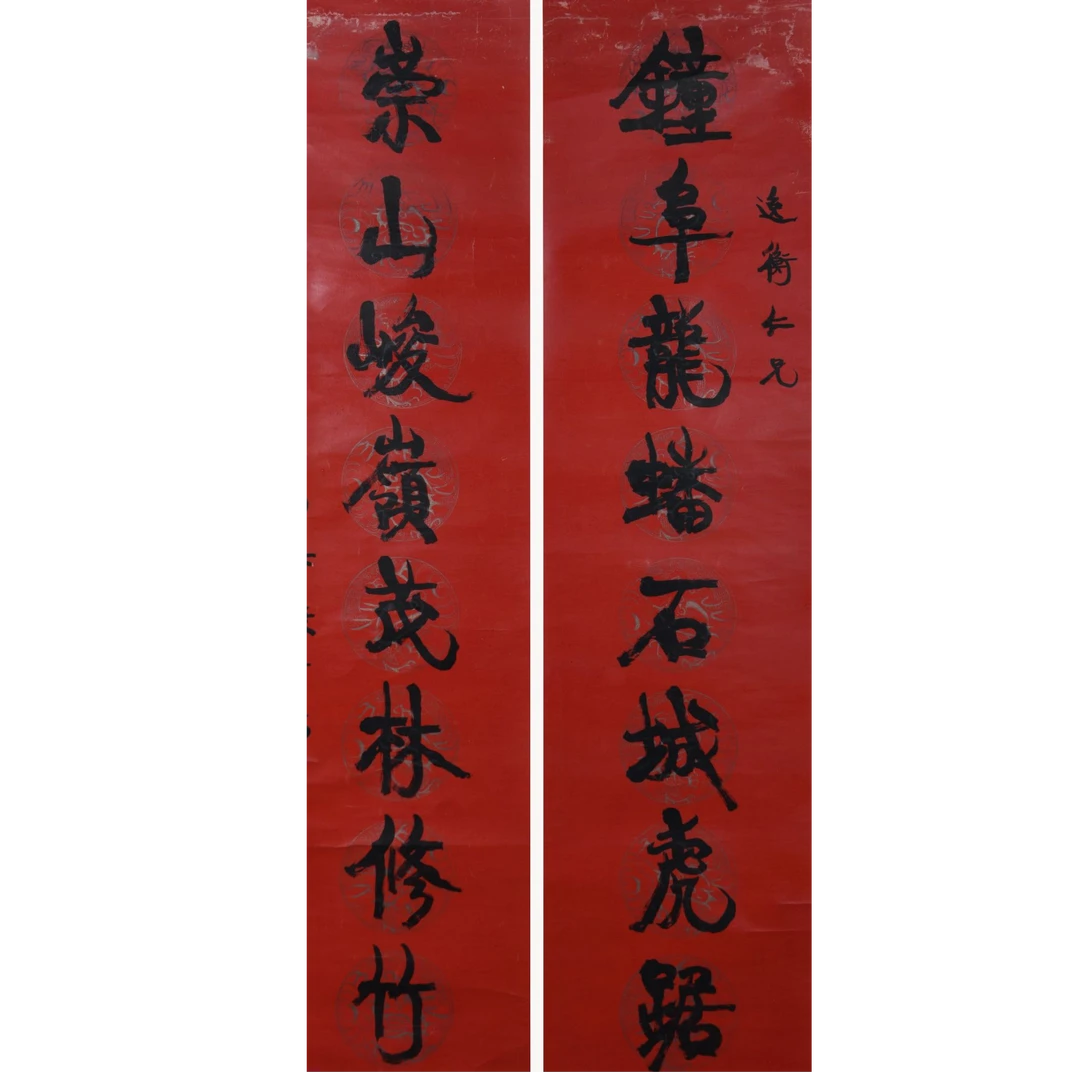 逸衡仁兄
鐘阜龍蟠石城虎踞
崇山峻嶺茂林修竹